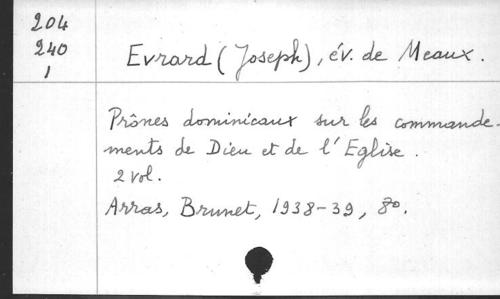 204
240
1
Evrard (Joseph), év. de Meaux.
Prônes dominicaux sur les commande-
ments de Dieu et de l'Eglise.
2 vol.
Arras, Brunet, 1938-39, 8º.